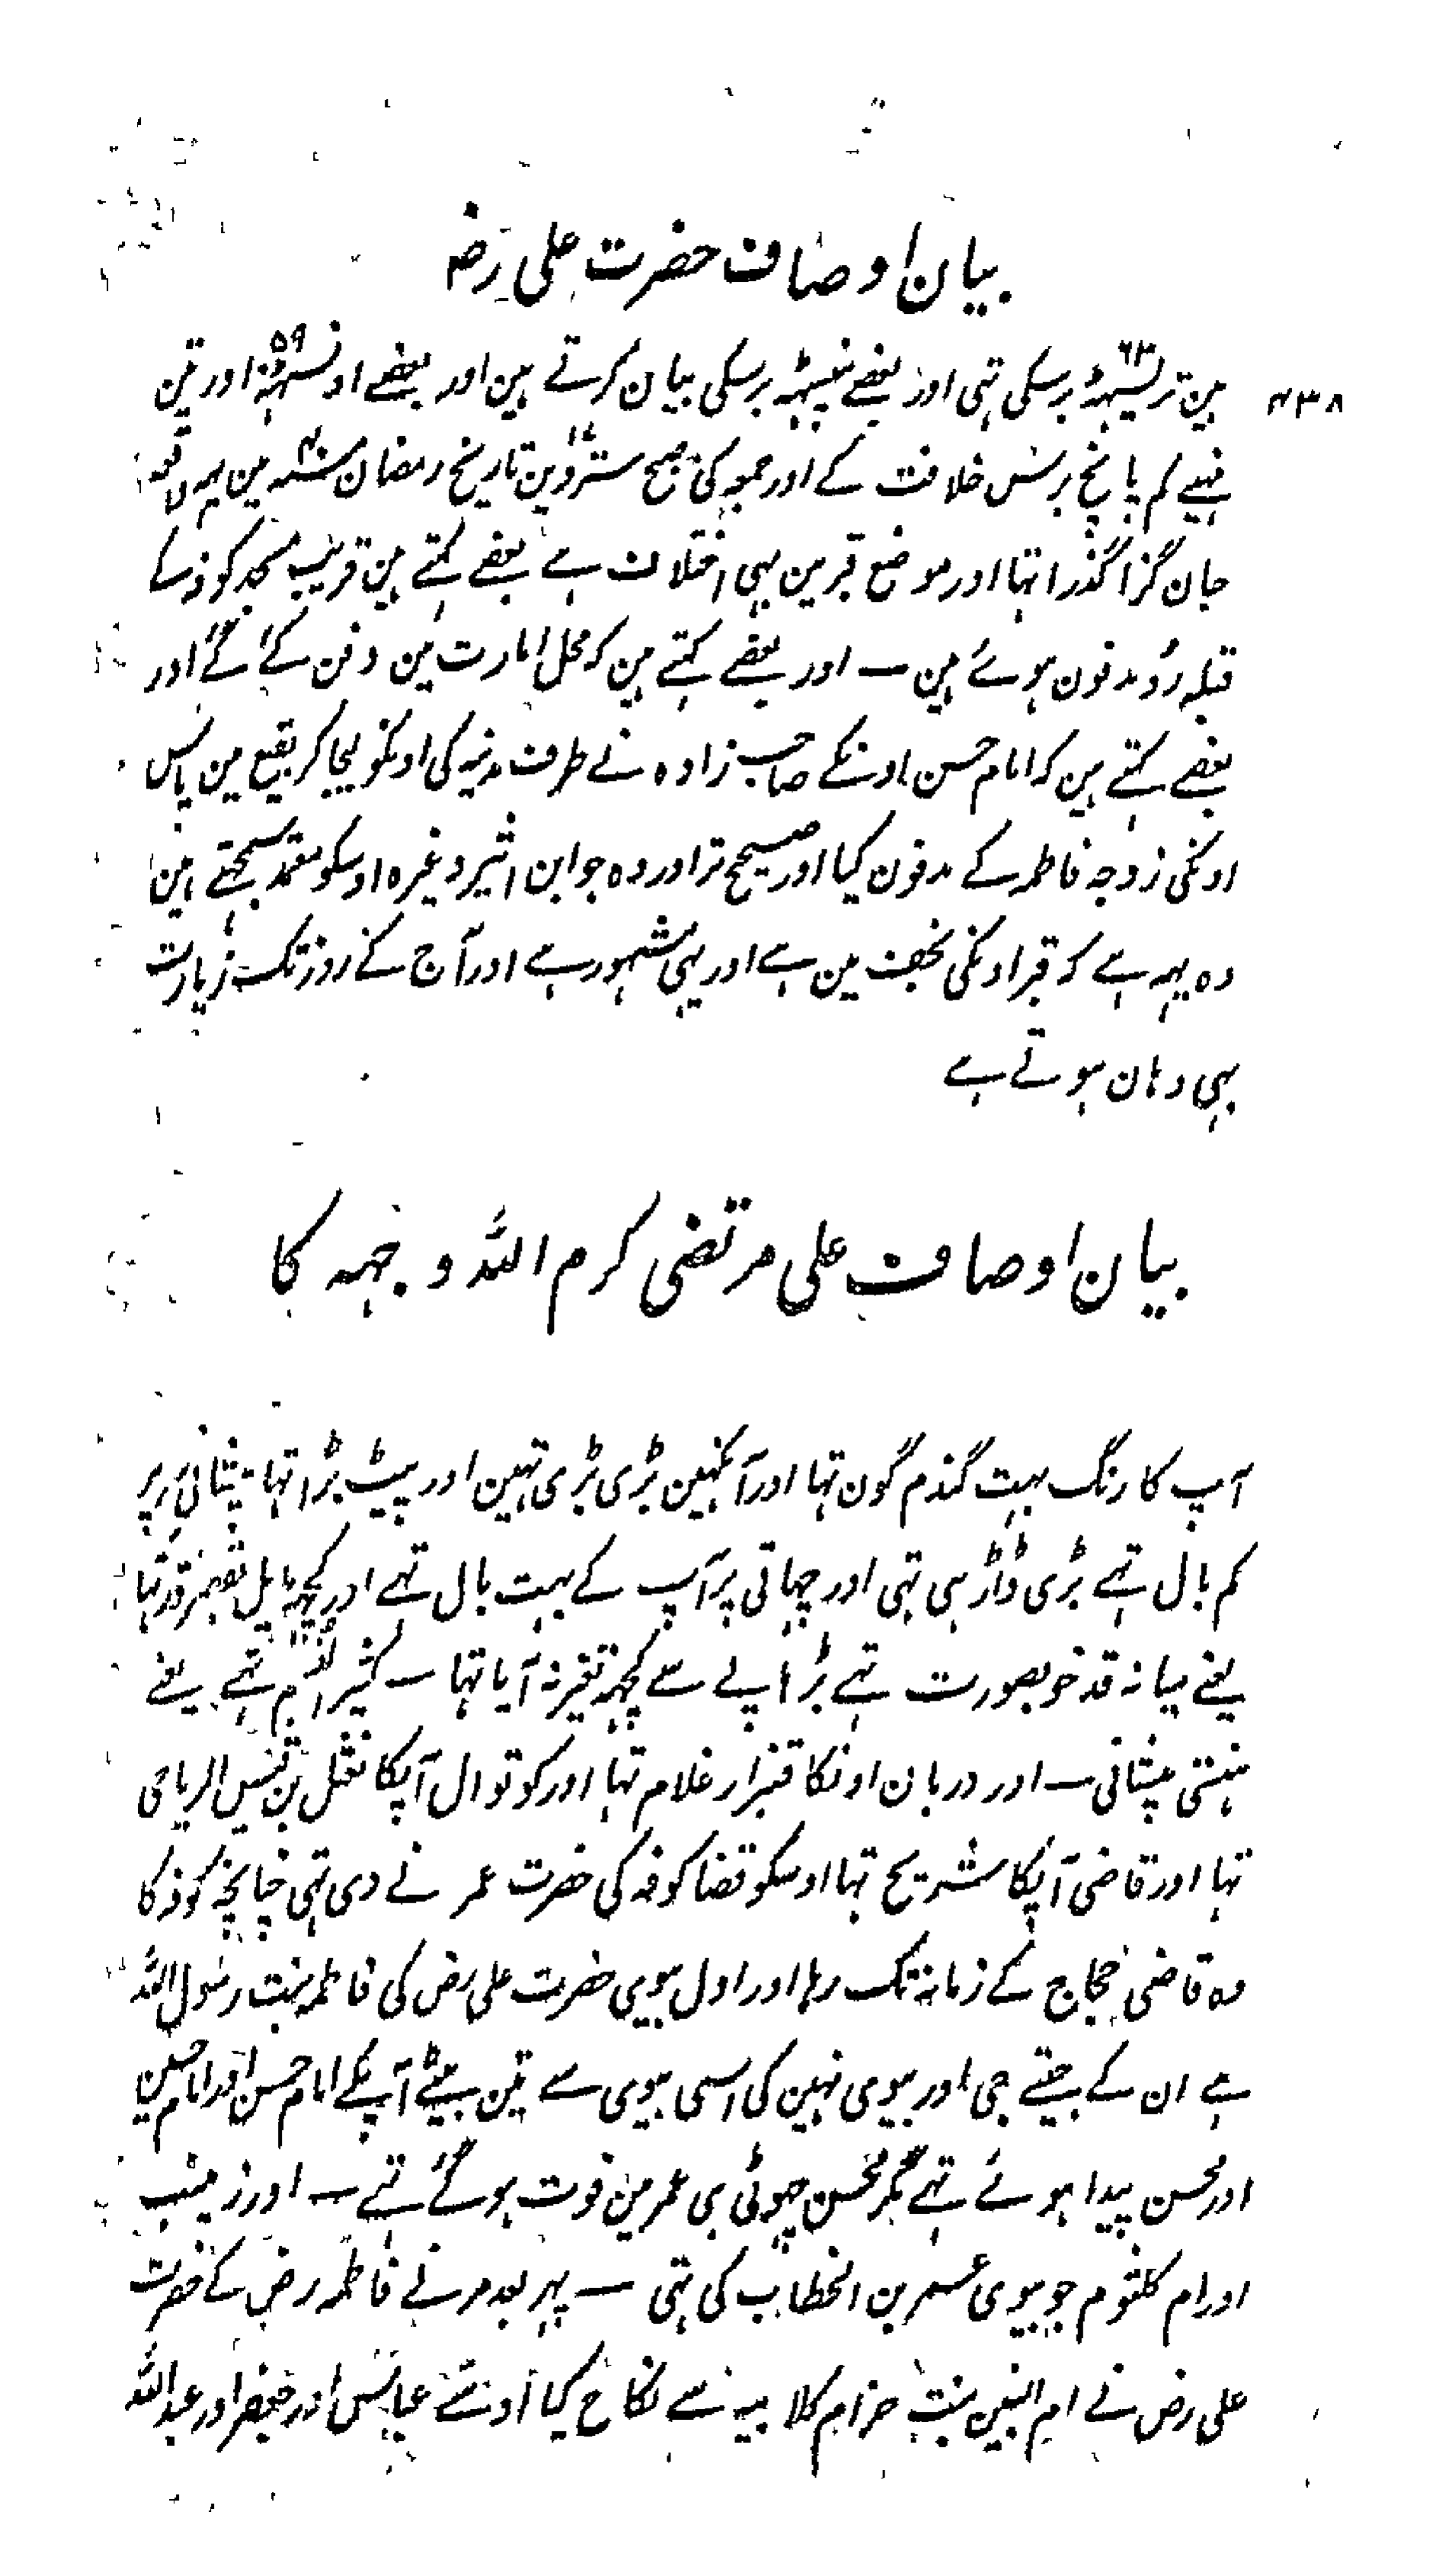 بیان اوصاف حضرت علی رضہ
۴۳۸
مین تریسہہ ۶۳ برسکی تہی اور بعضے پینسٹہہ برسکی بیان کرتے ہین اور بعضے اونسہہ ۵۹ اور تین
مہینے کم پانچ برس خلافت کے اور جمعہ کی صبح ستروین ۱۷ تاریخ رمضان سنہ ۴۰ مین یہہ واقعہ
جان گزا گذرا تہا اور موضع قبر مین بہی اختلاف ہے بعضے کہتے ہین قریب مسجد کوفہ کے
قبلہ رو مدفون ہوئے ہین ـ اور بعضے کہتے ہین کہ محل امارت مین دفن کئے گئے اور
بعضے کہتے ہین کہ امام حسن اونکے صاحب زادہ نے طرف مدینہ کی اونکو لیجا کر بقیع مین پاس
اونکی زوجہ فاطمہ کے مدفون کیا اور صحیح تر اور وہ جو ابن اثیر وغیرہ اوسکو معتمد سمجہتے ہین
وہ یہہ ہے کہ قبر اونکی نجف مین ہے اور یہی مشہور ہے اور آج کے روز تک زیارت
بہی وہان ہوتے ہے
بیان اوصاف علی مرتضی کرم اللہ وجہہ کا
آپ کا رنگ بہت گندم گون تہا اور آنکہین بڑی بڑی تہین اور پیٹ بڑا تہا پیشانی پر
کم بال تہے بڑی ڈاڑہی تہی اور چہاتی پر آپ کے بہت بال تہے اور کچہہ مایل بقصر قد تہا
یعنے میانہ قد خوبصورت تہے بڑاپے سے کچہہ تغیر نہ آیا تہا ـ کثیر التبسم تہے یعنے
ہنستی پیشانی ـ اور دربان اونکا قنبر غلام تہا اور کوتوال آپکا نعثل بن قیس الریاحی
تہا اور قاضی آپکا شریح تہا اوسکو قضا کوفہ کی حضرت عمر نے دی تہی چنانچہ کوفہ کا
وہ قاضی حجاج کے زمانہ تک رہا اور اول بیوی حضرت علی رض کی فاطمہ بنت رسول اللہ
ہے ان کے جیتے جی اور بیوی نہین کی اسی بیوی سے تین بیٹے آپکے امام حسن اور امام حسین
اور محسن پیدا ہوئے تہے مگر محسن چہوٹی ہی عمر مین فوت ہوگئے تہے ـ اور زینب
اور ام کلثوم جو بیوی عمر بن الخطاب کی تہی ـ پہر بعد مرنے فاطمہ رض کے حضرت
علی رض نے ام البنین بنت حزام کلابیہ سے نکاح کیا اونسے عباس اور جعفر اور عبد اللہ